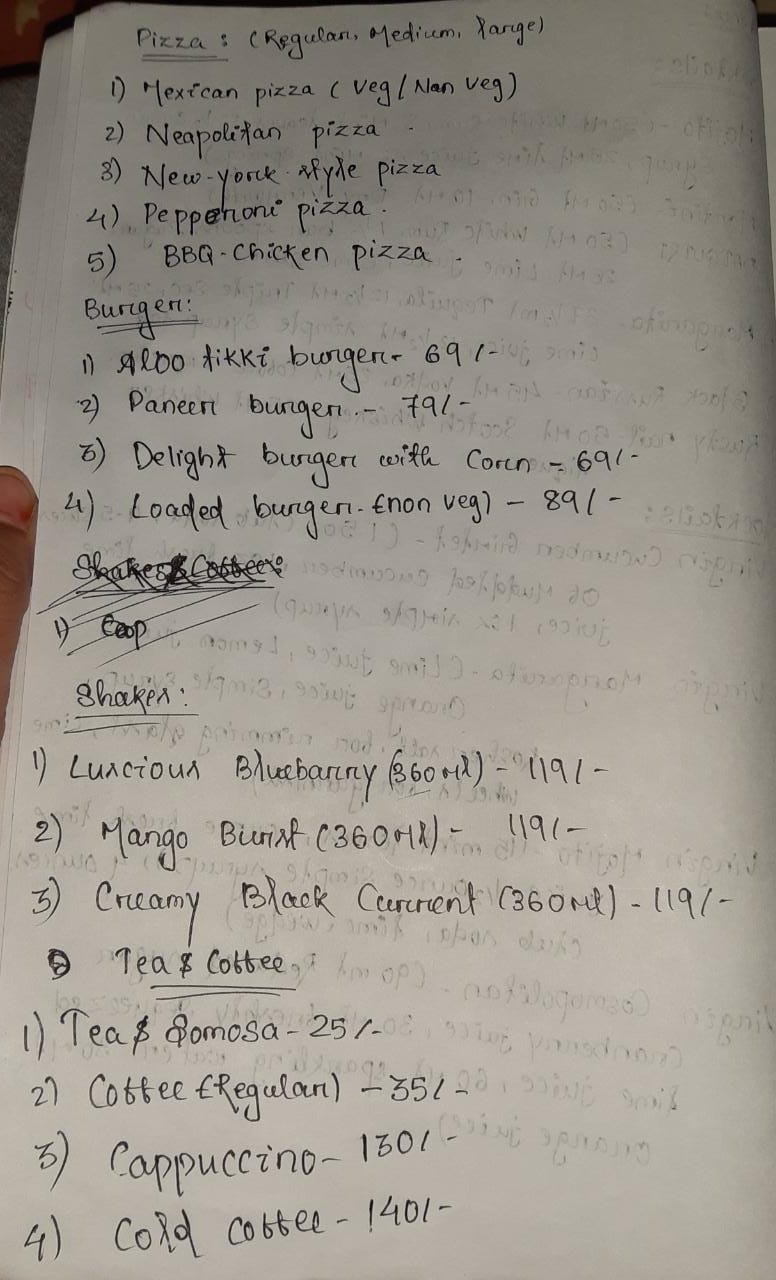 Pizza : (Regular, Medium, Large)
1) Mexican pizza ( Veg / Non Veg)
2) Neapolitan pizza .
3) New-yorck style pizza
4) Pepperoni pizza .
5) BBQ-Chicken pizza .
Burger:
1) Aloo tikki burger - 69/-
2) Paneer burger - 79/-
3) Delight burger with Corn - 69/-
4) Loaded burger. (non veg) - 89/-
Shakes & Coffee:
1) Cap
Shakes :
1) Luscious Bluebarry (360 Ml) - 119/-
2) Mango Burst (360 Ml) - 119/-
3) Creamy Black Current (360 Ml) - 119/-
Tea & Coffee :
1) Tea & Somosa - 25/-
2) Coffee (Regular) - 35/-
3) Cappuccino - 130/-
4) Cold coffee - 140/-